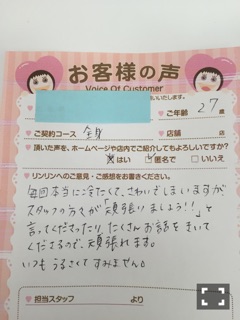 お客様の声
Voice Of Customer
いたします。
ご年齢 27 歳
ご契約コース 全身 店舗 店
頂いた声を、ホームページや店内でご紹介してもよろしいですか?
はい 匿名で いいえ
リンリンへのご意見・ご感想をお書きください。
毎回本当に冷たくて、さわいでしまいますが
スタッフの方々が「頑張りましょう!!」と
言ってくださったり、たくさんお話をきいて
くださるので、頑張れます。
いつもうるさくてすみません。
担当スタッフ より